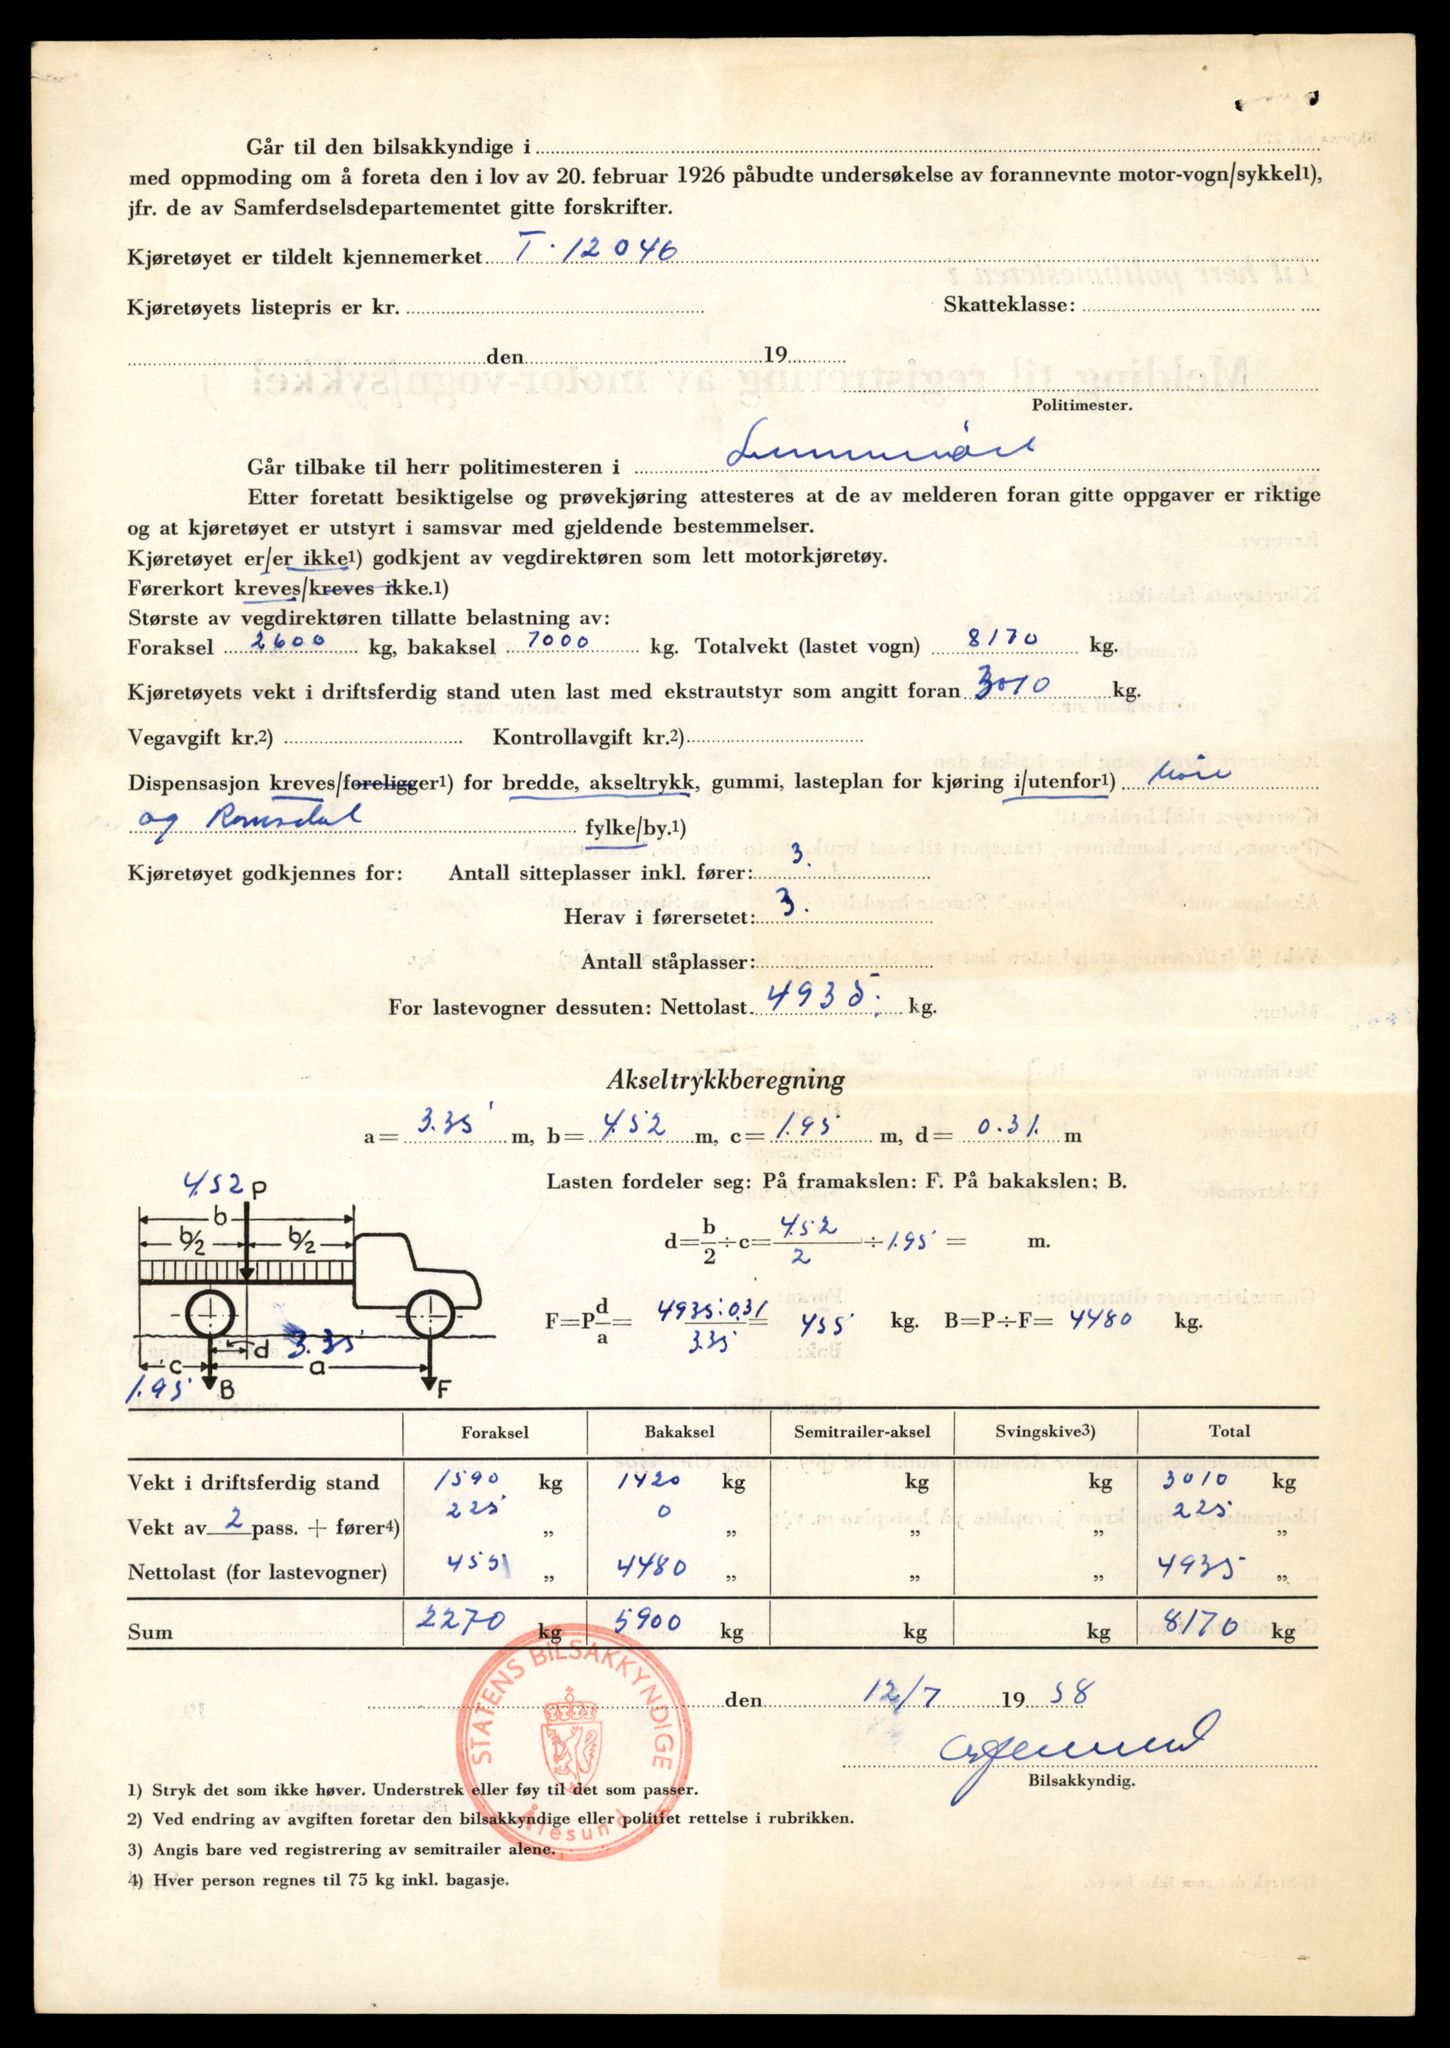 Går til den bilsakkyndige i
med oppmoding om å foreta den i lov av 20. februar 1926 påbudte undersøkelse av forannevnte motor-vogn/sykkel1),
jfr. de av Samferdselsdepartementet gitte forskrifter.
Kjøretøyet er tildelt kjennemerket T. 12046
Kjøretøyets listepris er kr. Skatteklasse:
den 19
Politimester.
Går tilbake til herr politimesteren i Sunnmöre
Etter foretatt besiktigelse og prøvekjøring attesteres at de av melderen foran gitte oppgaver er riktige
og at kjøretøyet er utstyrt i samsvar med gjeldende bestemmelser.
Kjøretøyet er/er ikke1) godkjent av vegdirektøren som lett motorkjøretøy.
Førerkort kreves/kreves ikke.1)
Største av vegdirektøren tillatte belastning av:
Foraksel 2600 kg, bakaksel 7000 kg. Totalvekt (lastet vogn) 8170 kg.
Kjøretøyets vekt i driftsferdig stand uten last med ekstrautstyr som angitt foran 3010 kg.
Vegavgift kr.2) Kontrollavgift kr.2)
Dispensasjon kreves/foreligger1) for bredde, akseltrykk, gummi, lasteplan for kjøring i/utenfor1) Möre
og Romsdal fylke/by.1)
Kjøretøyet godkjennes for: Antall sitteplasser inkl. fører: 3.
Herav i førersetet: 3.
Antall ståplasser:
For lastevogner dessuten: Nettolast 4935. kg.
Akseltrykkberegning
a = 3.35 m, b = 4.52 m, c = 1.95 m, d = 0.31. m
Lasten fordeler seg: På framakslen: F. På bakakslen: B.
4.52 P
b
b/2 b/2
d = b/2 ÷ c = 4.52/2 ÷ 1.95 = m.
F = P d/a = 4935·0.31/3.35 = 455 kg. B = P ÷ F = 4480 kg.
d 3.35
c a
1.95 B F
Foraksel Bakaksel Semitrailer-aksel Svingskive3) Total
Vekt i driftsferdig stand 1590 kg 1420 kg kg kg 3010 kg
Vekt av 2 pass. + fører4) 225 „ 0 „ „ „ 225 „
Nettolast (for lastevogner) 455 „ 4480 „ „ „ 4935 „
Sum 2270 kg 5900 kg kg kg 8170 kg
den 12/7 19 58
Bilsakkyndig.
STATENS BILSAKKYNDIGE
Ålesund
1) Stryk det som ikke høver. Understrek eller føy til det som passer.
2) Ved endring av avgiften foretar den bilsakkyndige eller politiet rettelse i rubrikken.
3) Angis bare ved registrering av semitrailer alene.
4) Hver person regnes til 75 kg inkl. bagasje.